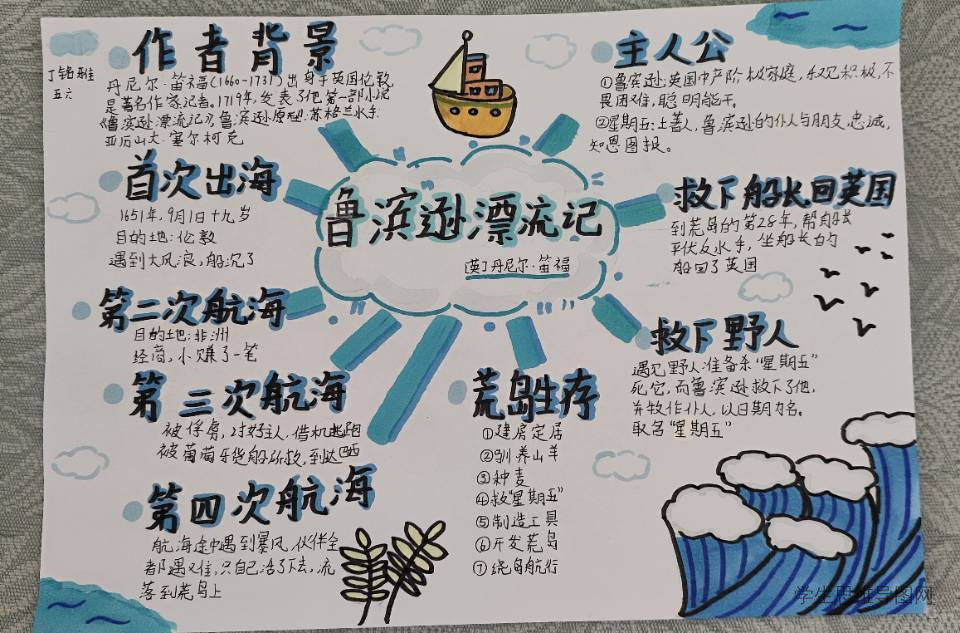 作者背景
五六
丹尼尔·笛福(1660-1731)出身于英国伦敦,
是著名作家记者。1719年,发表了他第一部小说
《鲁滨逊漂流记》,鲁滨逊原型:苏格兰水手
亚历山大·塞尔柯克
主人公
①鲁滨逊:英国中产阶级家庭,积极,不
畏困难,聪明能干。
②星期五:土著人,鲁滨逊的仆人与朋友,忠诚,
知恩图报。
首次出海
1651年,9月1日十九岁
目的地:伦敦
遇到大风浪,船沉了
鲁滨逊漂流记
[英]丹尼尔·笛福
救下船长回英国
到荒岛的第28年,帮船长
平伏反水手,坐船长的
船回了英国
第二次航海
目的地:非洲
经商,小赚了一笔
救下野人
遇见野人准备杀“星期五”
死它,而鲁滨逊救下了他,
并牧作仆人,以日期为名。
取名“星期五”
第三次航海
被俘虏,讨好主人,借机逃跑
被葡萄牙货船所救,到达巴西
荒岛生存
①建房定居
②驯养山羊
③种麦
④救“星期五”
⑤制造工具
⑥开发荒岛
⑦绕岛航行
第四次航海
航海途中遇到暴风,伙伴全
都遇难,只自己活了下去,流
落到荒岛上
学生思维导图网